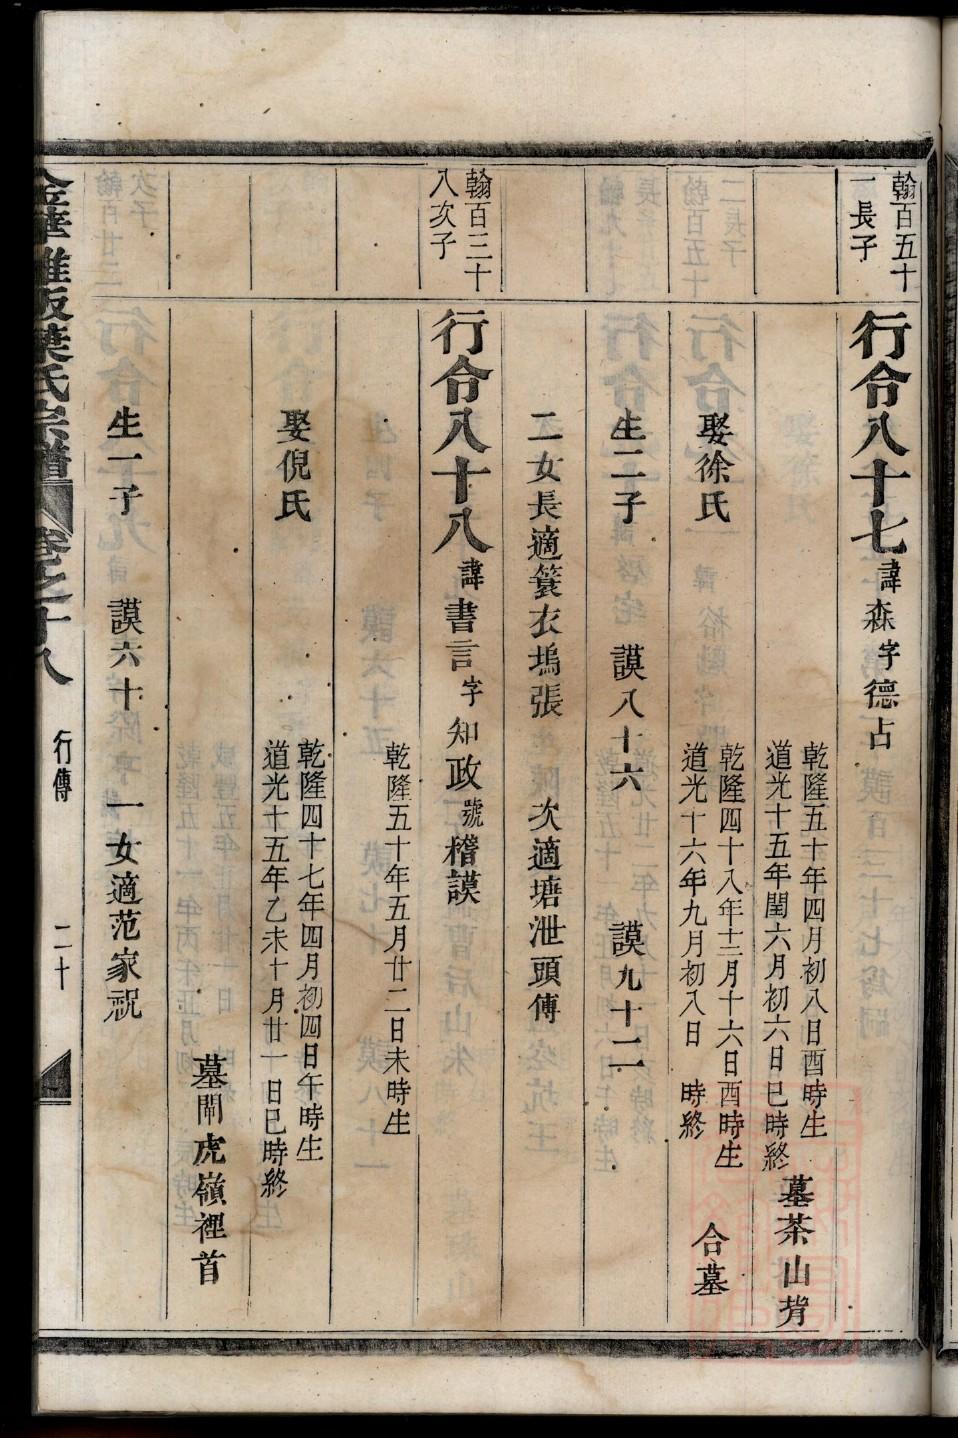 翰百五十
一長子
行令八十七諱森字德占
乾隆五十年四月初八日酉時生
道光十五年閏六月初六日巳時終
墓茶山背
娶徐氏
乾隆四十八年十二月十六日酉時生
道光十六年九月初八日 時終
合墓
生二子 謨八十六 謨九十二
二女長適簑衣塢張 次適塘泄頭傅
翰百三十
八次子
行令八十八諱書言字知政號稽謨
乾隆五十年五月廿二日未時生
娶倪氏
乾隆四十七年四月初四日午時生
道光十五年乙未十月廿一日巳時終
墓閙虎嶺裡首
生一子 謨六十 一女適范家祝
金華雅畈葉氏宗譜 卷之十八 行傳 二十